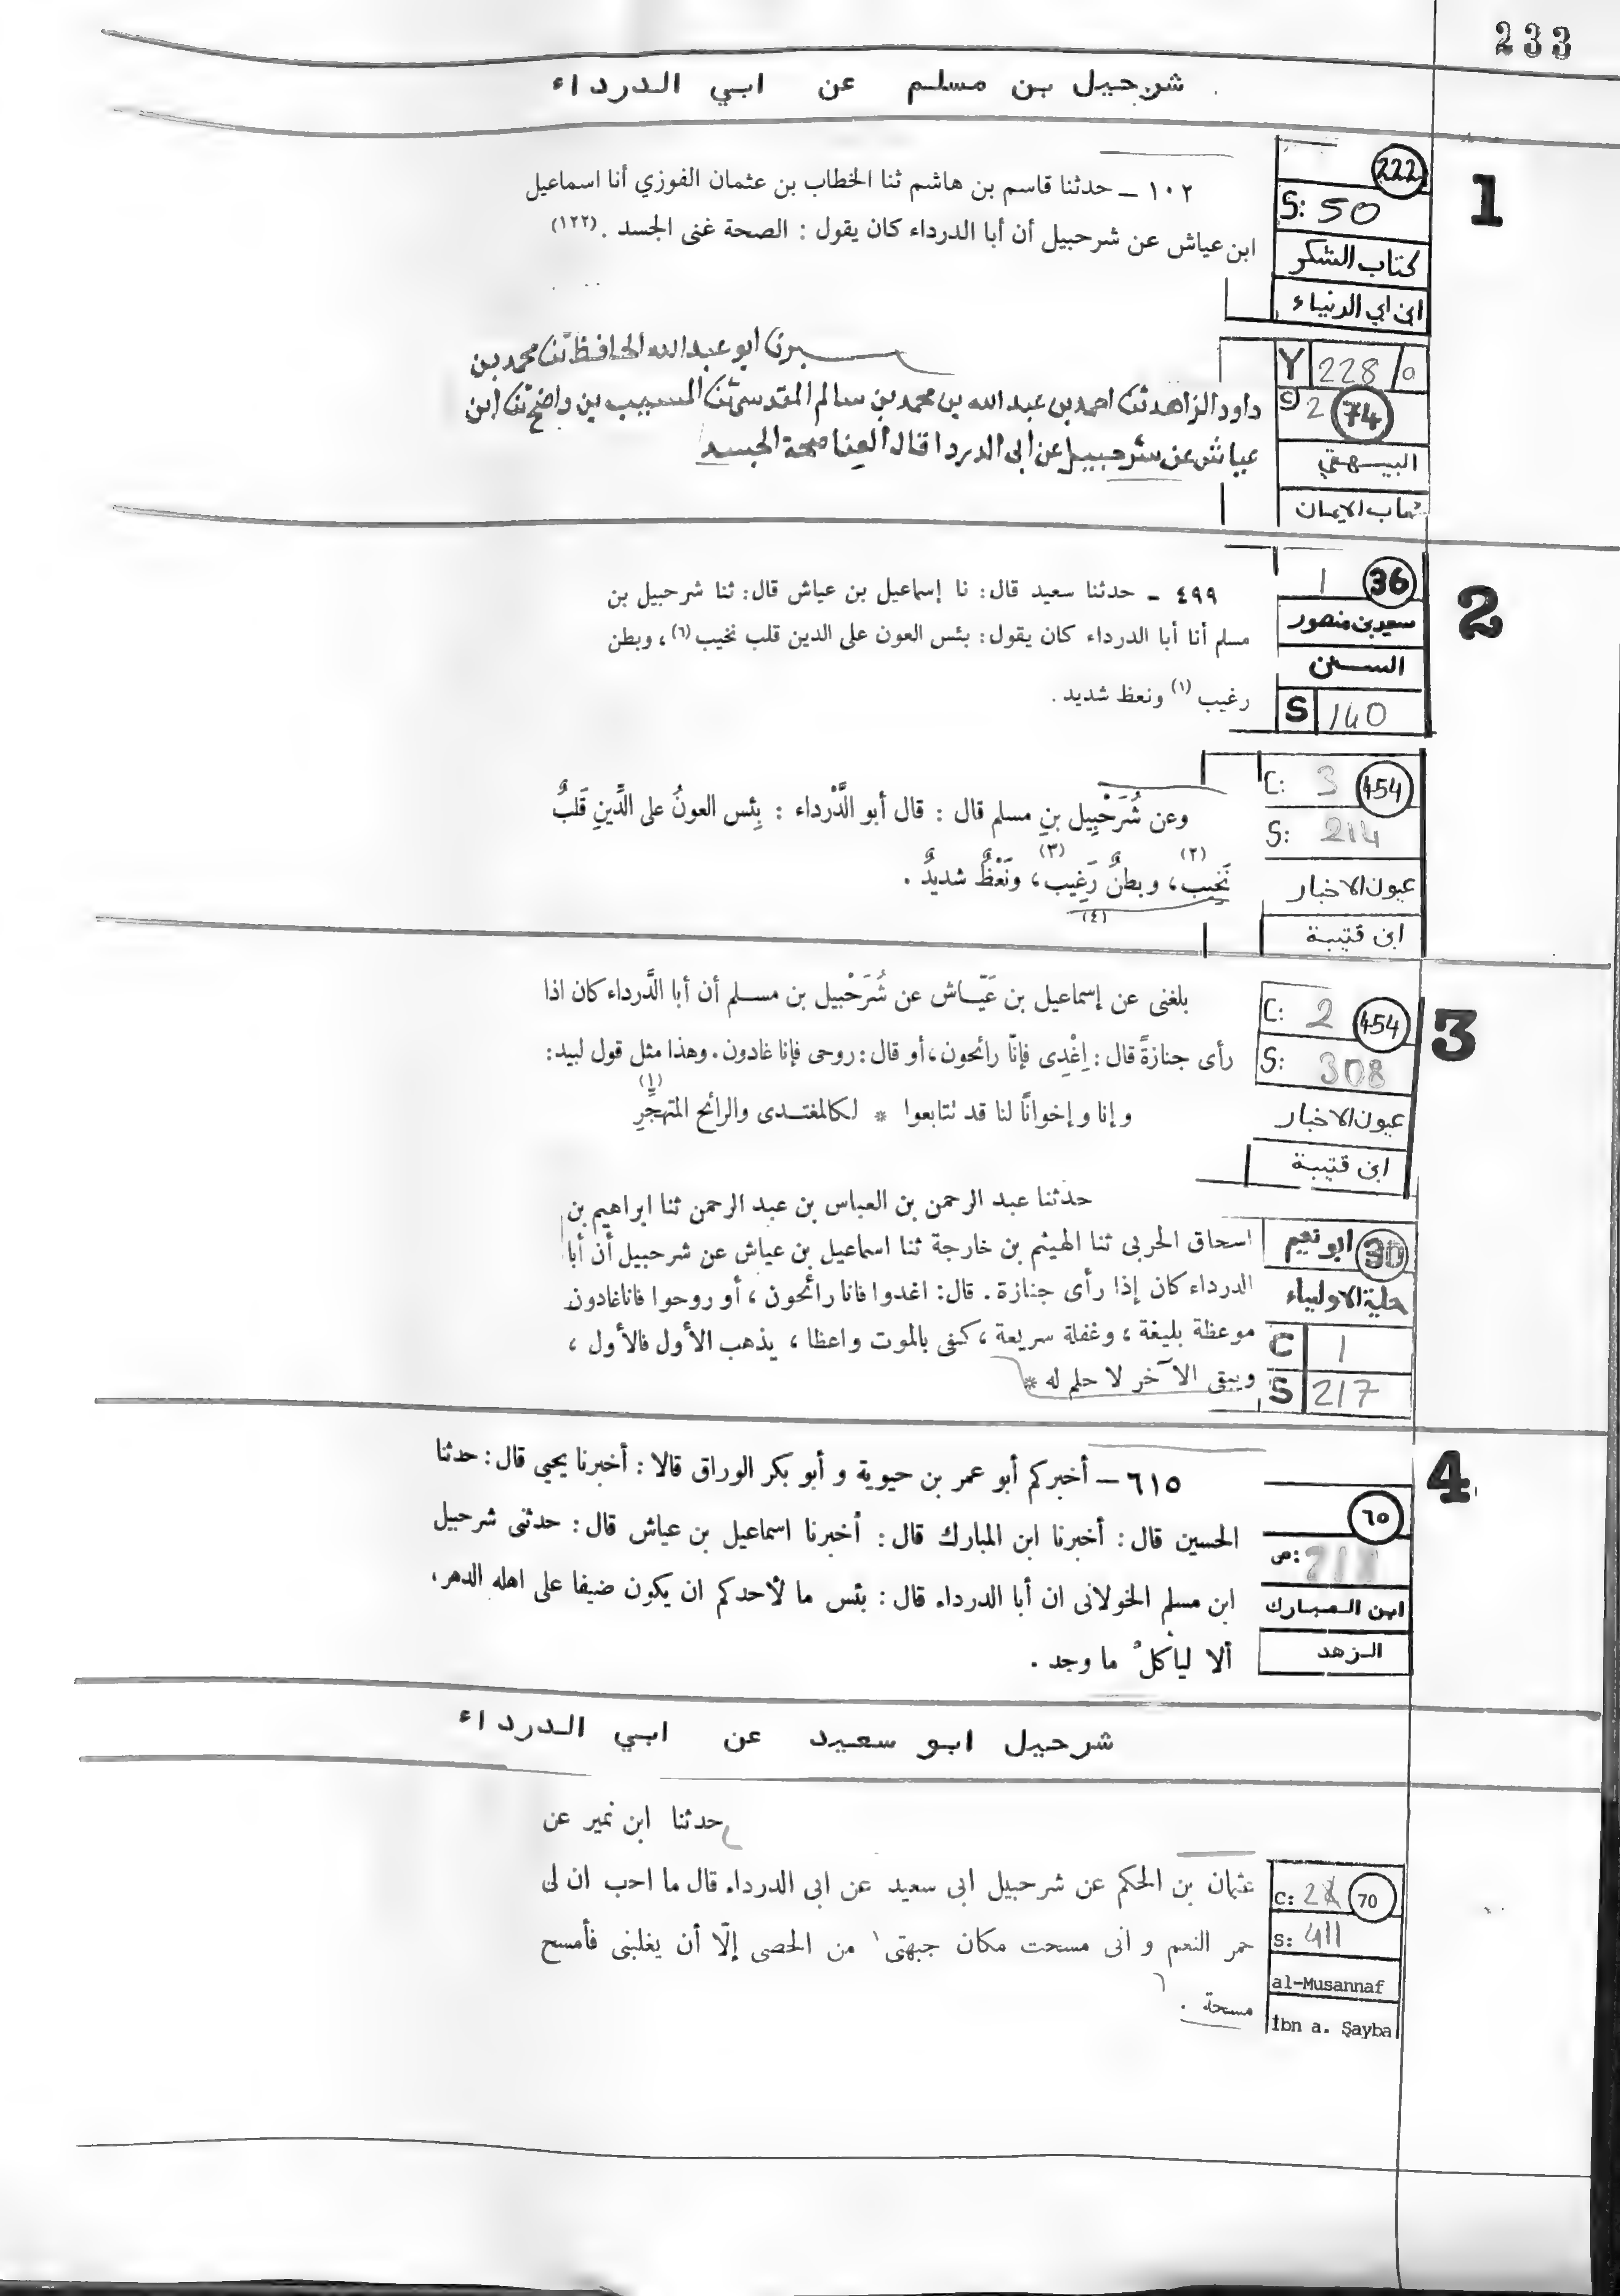 233
شرحبيل بن مسلم عن ابي الدرداء
1
222
S: 50
كتاب الشكر
ابن ابي الدنياء
١٠٢ – حدثنا قاسم بن هاشم ثنا الخطاب بن عثمان الفوزي أنا اسماعيل
ابن عياش عن شرحبيل أن أبا الدرداء كان يقول : الصحة غنى الجسد . (١٢٢)
Y 228/a
C 2 74
البيهقي
شعاب الايمان
ابو عبد الله الحافظ ثنا محمد بن
داود الزاهد ثنا احمد بن عبد الله بن محمد بن سالم المقدسي ثنا المسيب بن واضح ثنا ابن
عياش عن شرحبيل عن أبي الدردا قال الغنا صحة الجسد
2
1 36
سعيد بن منصور
السنن
S 140
٤٩٩ - حدثنا سعيد قال: نا إسماعيل بن عياش قال: ثنا شرحبيل بن
مسلم أنا أبا الدرداء كان يقول: بئس العون على الدين قلب نخيب (٦) ، وبطن
رغيب (١) ونعظ شديد .
C: 3 454
S: 214
عيون الاخبار
ابن قتيبة
وعن شُرَحْبِيل بنِ مسلم قال : قال أبو الدَّرْداء : بِئس العونُ على الدِّينِ قَلبٌ
نَخِيبٌ (٢)، وبطنٌ رَغِيبٌ (٣)، ونَعْظٌ شديدٌ .
(٤)
3
C: 2 454
S: 308
عيون الاخبار
ابن قتيبة
بلغنى عن إسماعيل بن عَيّاش عن شُرَحْبيل بن مسلم أن أبا الدَّرداء كان اذا
رأى جنازةً قال : اِغْدِى فإنّا رائحون، أو قال: روحى فإنا غادون. وهذا مثل قول لبيد:
وإنا وإخوانًا لنا قد تتابعوا * لكالمغتدى والرائح المتهجِّرِ (١)
30 ابو نعيم
حلية الاولياء
C 1
S 217
حدثنا عبد الرحمن بن العباس بن عبد الرحمن ثنا ابراهيم بن
اسحاق الحربى ثنا الهيثم بن خارجة ثنا اسماعيل بن عياش عن شرحبيل أن أبا
الدرداء كان إذا رأى جنازة . قال: اغدوا فانا رائحون ، أو روحوا فاناغادون
موعظة بليغة ، وغفلة سريعة ، كفى بالموت واعظا ، يذهب الأول فالأول ،
ويبقى الآخر لا حلم له *
4
٦٥
ص:
ابن المبارك
الزهد
٦١٥ – أخبركم أبو عمر بن حيوية و أبو بكر الوراق قالا : أخبرنا يحيى قال : حدثنا
الحسين قال : أخبرنا ابن المبارك قال : أخبرنا اسماعيل بن عياش قال : حدثنى شرحبيل
ابن مسلم الخولانى ان أبا الدرداء قال : بئس ما لأحدكم ان يكون ضيفا على اهله الدهر،
ألا ليأكلْ ما وجد .
شرحبيل ابو سعيد عن ابي الدرداء
C: 2 70
S: 411
al-Musannaf
İbn a. Şayba
حدثنا ابن نمير عن
عثمان بن الحكم عن شرحبيل ابى سعيد عن ابى الدرداء قال ما احب ان لى
حمر النعم و انى مسحت مكان جبهتى ١ من الحصى إلّا أن يغلبنى فأمسح
مسحة .